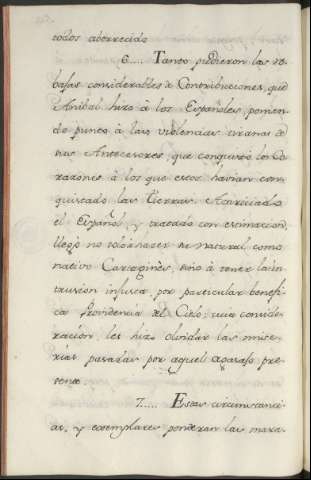 todos aborrecido
6.... Tanto pudieron las re-
bajas considerables de Contribuciones, que
Anibal hizo à los Españoles, ponien-
do punto à las violencias tiranas de
sus Antecesores, que conquistò los Co-
razones à los que estos havian con-
quistado las tierras. Acariciado
el Español, y tratado con estimacion,
llegò no solo à hacerse natural como
nativo Cartaginès, sino à tener la in-
trusion injusta por particular benefi-
ca Providencia del Cielo: cuia conside-
racion les hizo olvidar las mise-
rias pasadas por aquel agasajo pre-
sente
7..... Estas circunstanci-
as, y exemplares ponderan las maxi-